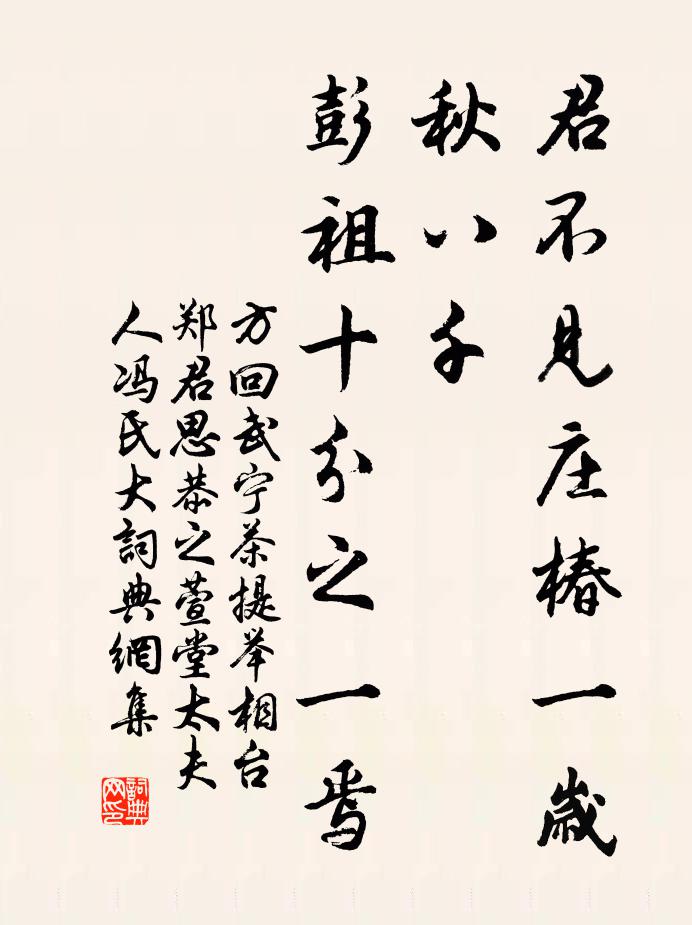 君不见庄椿一岁
秋八千
彭祖十分之一焉
方回武宁茶提举相台
郑君思恭之萱堂太夫
人冯氏大詞典網集
詞典
网印